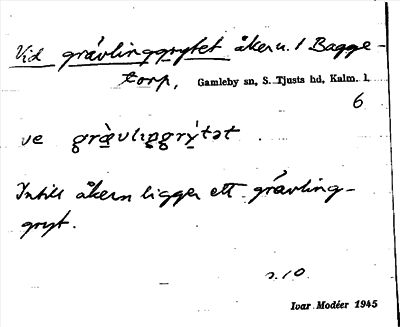 Vid grävlinggrytet åker u. / Bagge-
torp, Gamleby sn, S. Tjusts hd, Kalm. l.
6
ve græ̀vlɩŋgrý̀tət
Intill åkern ligger ett grävling-
gryt.
s. 10.
Ivar Modéer 1945